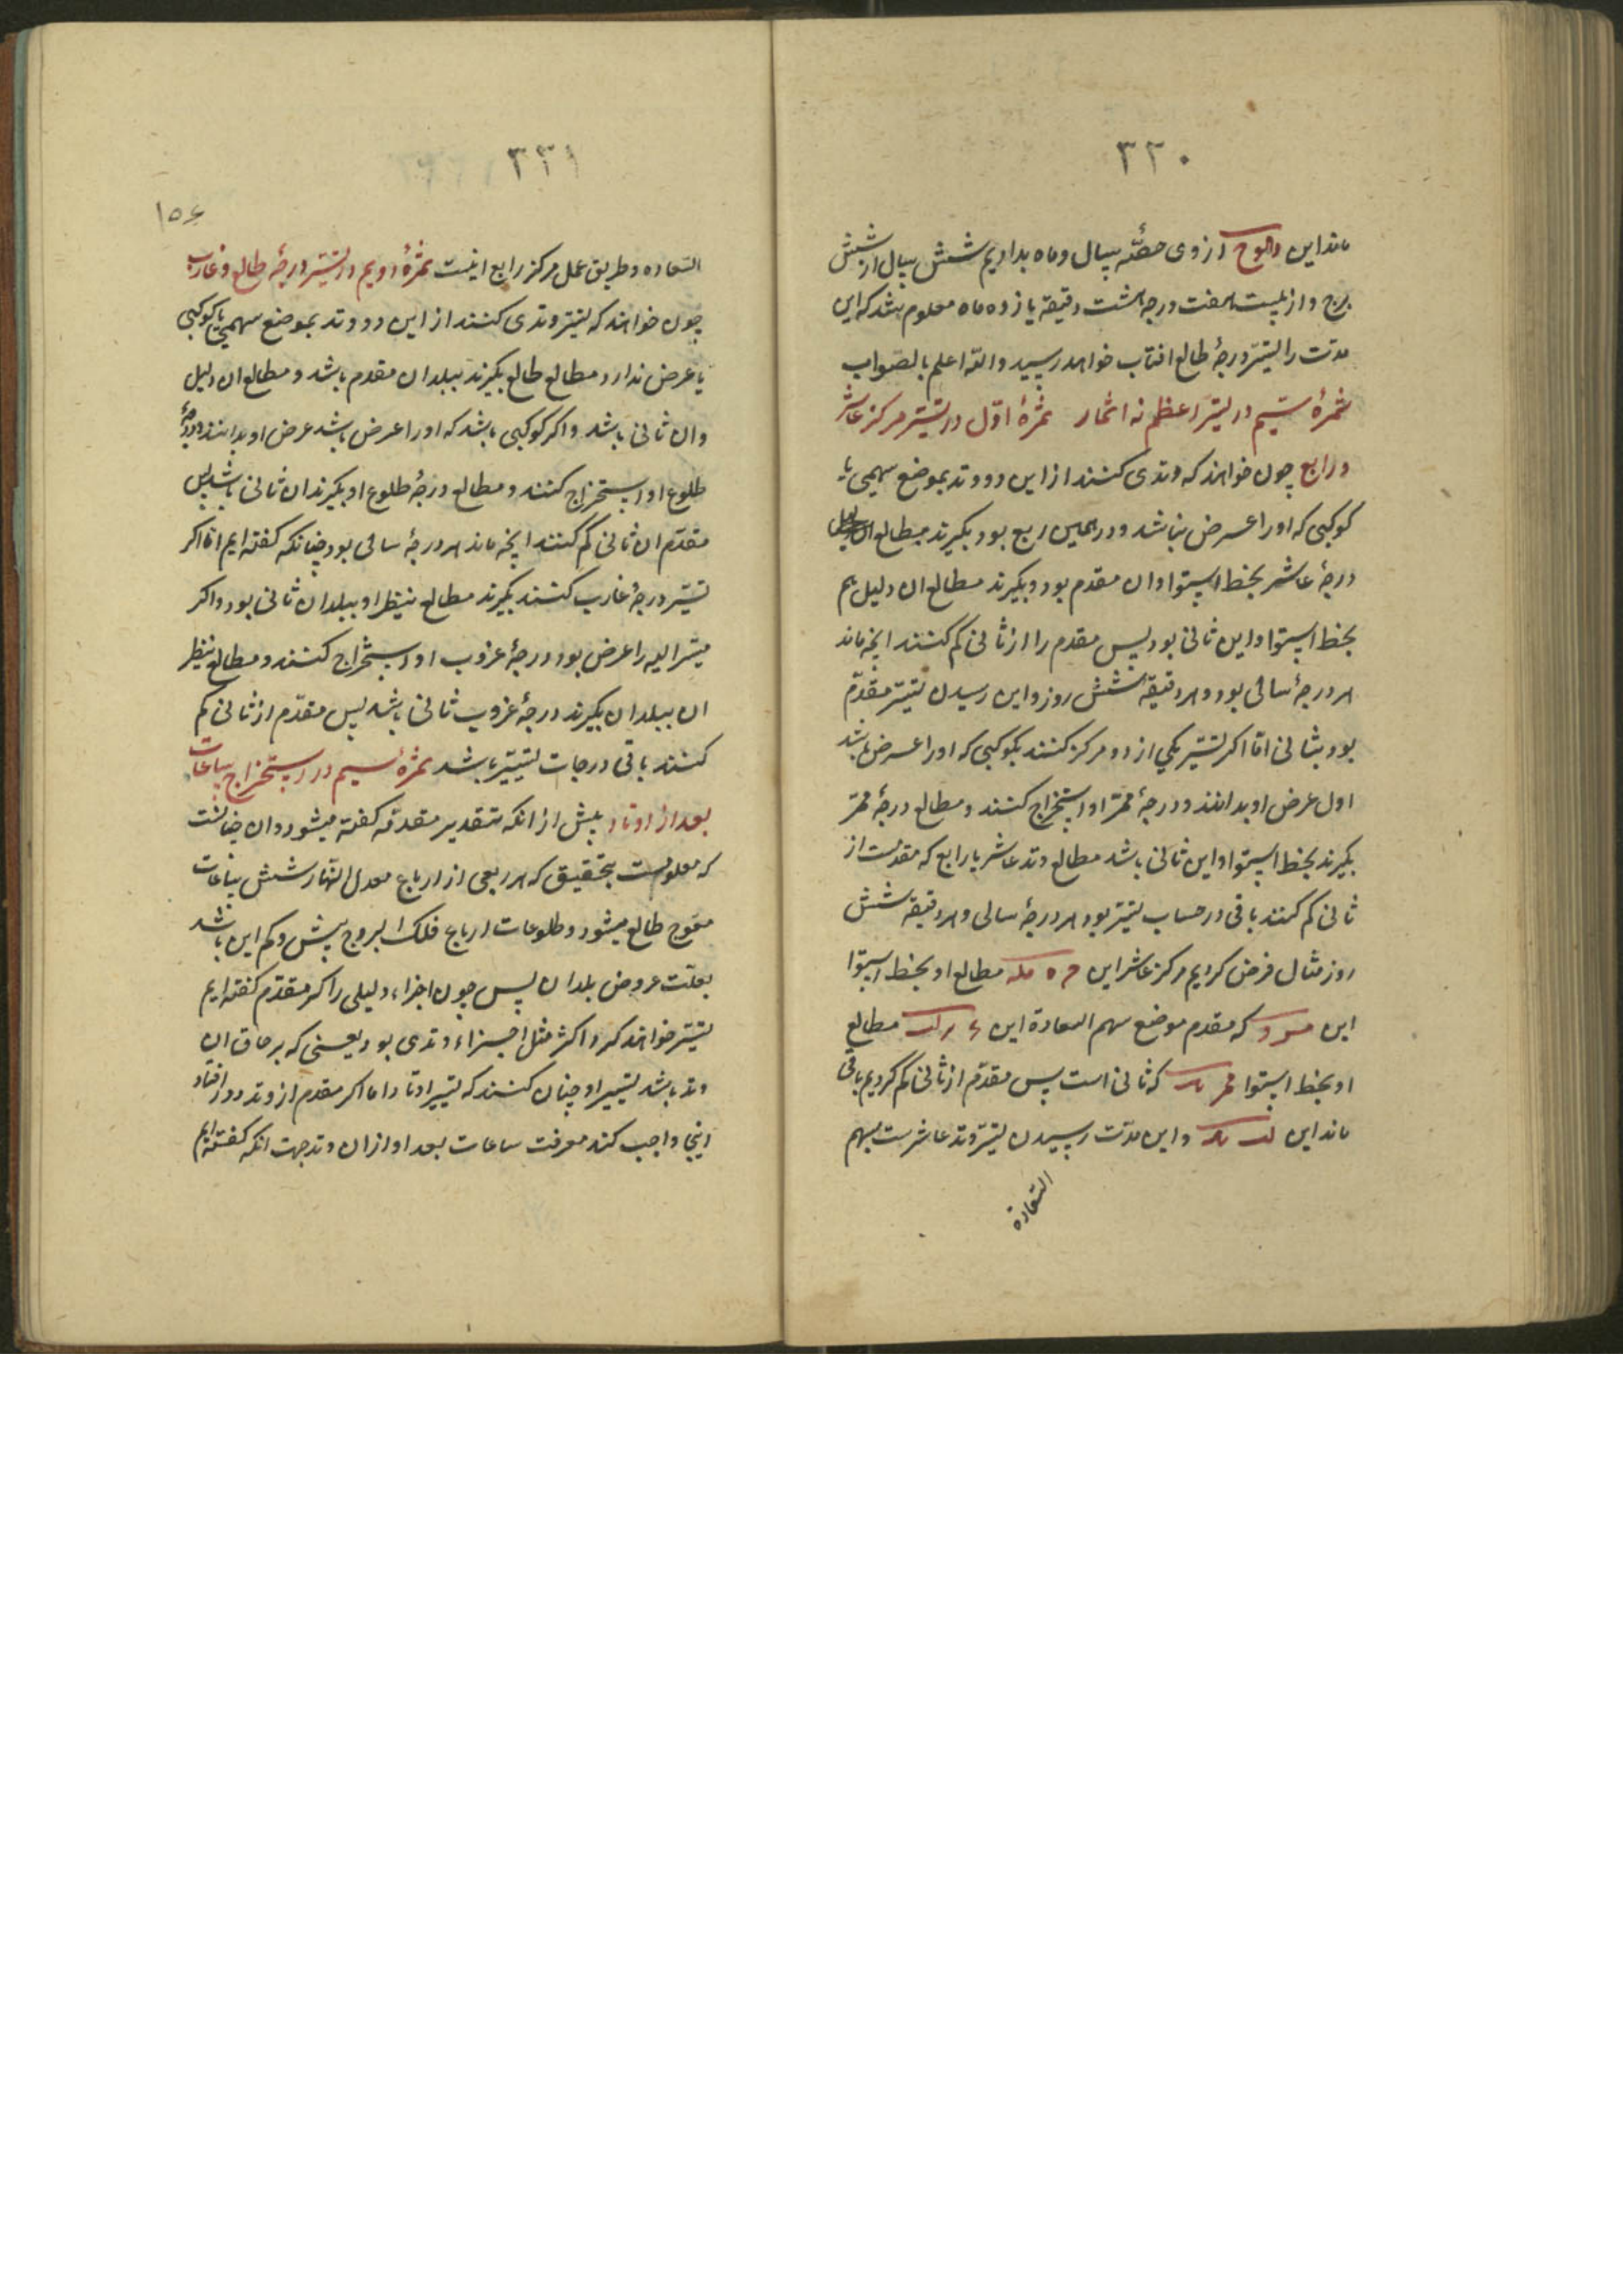 ۳۳۰
ماند این از وی حصّه بسال و ماه بدادیم شش سال از شش
برج و از بیست هفت درجه هشت دقیقه یازده ماه معلوم شد که این
مدّت را تسیّر درجهٔ طالع افتاب خواهد رسید والله اعلم بالصواب
ثمرهٔ سیم در تسیّر اعظم نه اثمار ثمرهٔ اوّل در تسیّر مرکز عاشر
و رابع چون خواهند که وتدی کنند از این دو وتد بموضع سهمی یا
کوکبی که اورا عرض نباشد و در همین ربع بود بکیرند مطالع
درجهٔ عاشر بخط استوا و ان مقدم بود و بکیرند مطالع ان دلیل هم
بخط استوا و این ثانی بود پس مقدم را از ثانی کم کنند انچه ماند
هر درجهٔ سالی بود و هر دقیقه شش روز و این رسیدن تسیّر مقدّم
بود بثانی امّا اکر تسیّر یکی از دو مرکز کنند بکوکبی که اورا عرض باشد
اول عرض او بدانند و درجهٔ ممرّ او استخراج کنند و مطالع درجهٔ ممرّ
بکیرند بخط استوا و این ثانی باشد مطالع وتد عاشر یا رابع که مقدمست از
ثانی کم کنند باقی در حساب تسیّر بود هر درجهٔ سالی و هر دقیقه شش
روز مثال فرض کردیم مرکز عاشر این مطالع او بخط استوا
این که مقدم موضع سهم السعادة این مطالع
او بخط استوا که ثانی است پس مقدّم از ثانی کم کردیم باقی
ماند این و این مدّت رسیدن تسیّر وتد عاشرست بسهم
السّعادة
۳۳۱
۱۵۶
السّعاده و طریق عمل مرکز رابع اینست ثمرهٔ دویم در تسیّر درجهٔ طالع و غارب
چون خواهند که تسیّر وتدی کنند از این دو وتد بموضع سهمی یا کوکبی
یا عرض ندارد مطالع طالع بکیرند ببلد ان مقدم باشد و مطالع ان دلیل
و ان ثانی باشد و اکر کوکبی باشد که اورا عرض باشد عرض او بدانند و درجهٔ
طلوع او استخراج کنند و مطالع درجهٔ طلوع او بکیرند ان ثانی باشد پس
مقدّم ان ثانی کم کنند انچه ماند هر درجهٔ سالی بود چنانکه کفته ایم امّا اکر
تسیّر درجهٔ غارب کنند بکیرند مطالع نظیر او ببلد ان ثانی بود و اکر
مسیّر الیه را عرض بود درجهٔ غروب او استخراج کنند و مطالع نظیر
ان ببلد ان بکیرند درجهٔ غروب ثانی باشد پس مقدّم از ثانی کم
کنند باقی درجات تسییر باشد ثمرهٔ سیم در استخراج ساعات
بعد از اوتاد پیش از انکه بتقدیر مقدمه کفته میشود و ان چنانست
که معلومست بتحقیق که هر ربعی از ارباع معدل النهار شش ساعات
معوج طالع میشود و طلوعات ارباع فلک البروج بیش و کم این باشد
بعلّت عروض بلدان پس چون اجزاء دلیلی را که مقدّم کفته ایم
تسیّر خواهند کرد اکثر مثل اجزاء وتدی بود یعنی که بر حاق ان
وتد باشد تسییر او چنان کنند که تسییر اوتاد اما اکر مقدم از وتد دور افتاد
اینجا واجب کند معرفت ساعات بعد او از ان وتد جهت انکه کفته ایم